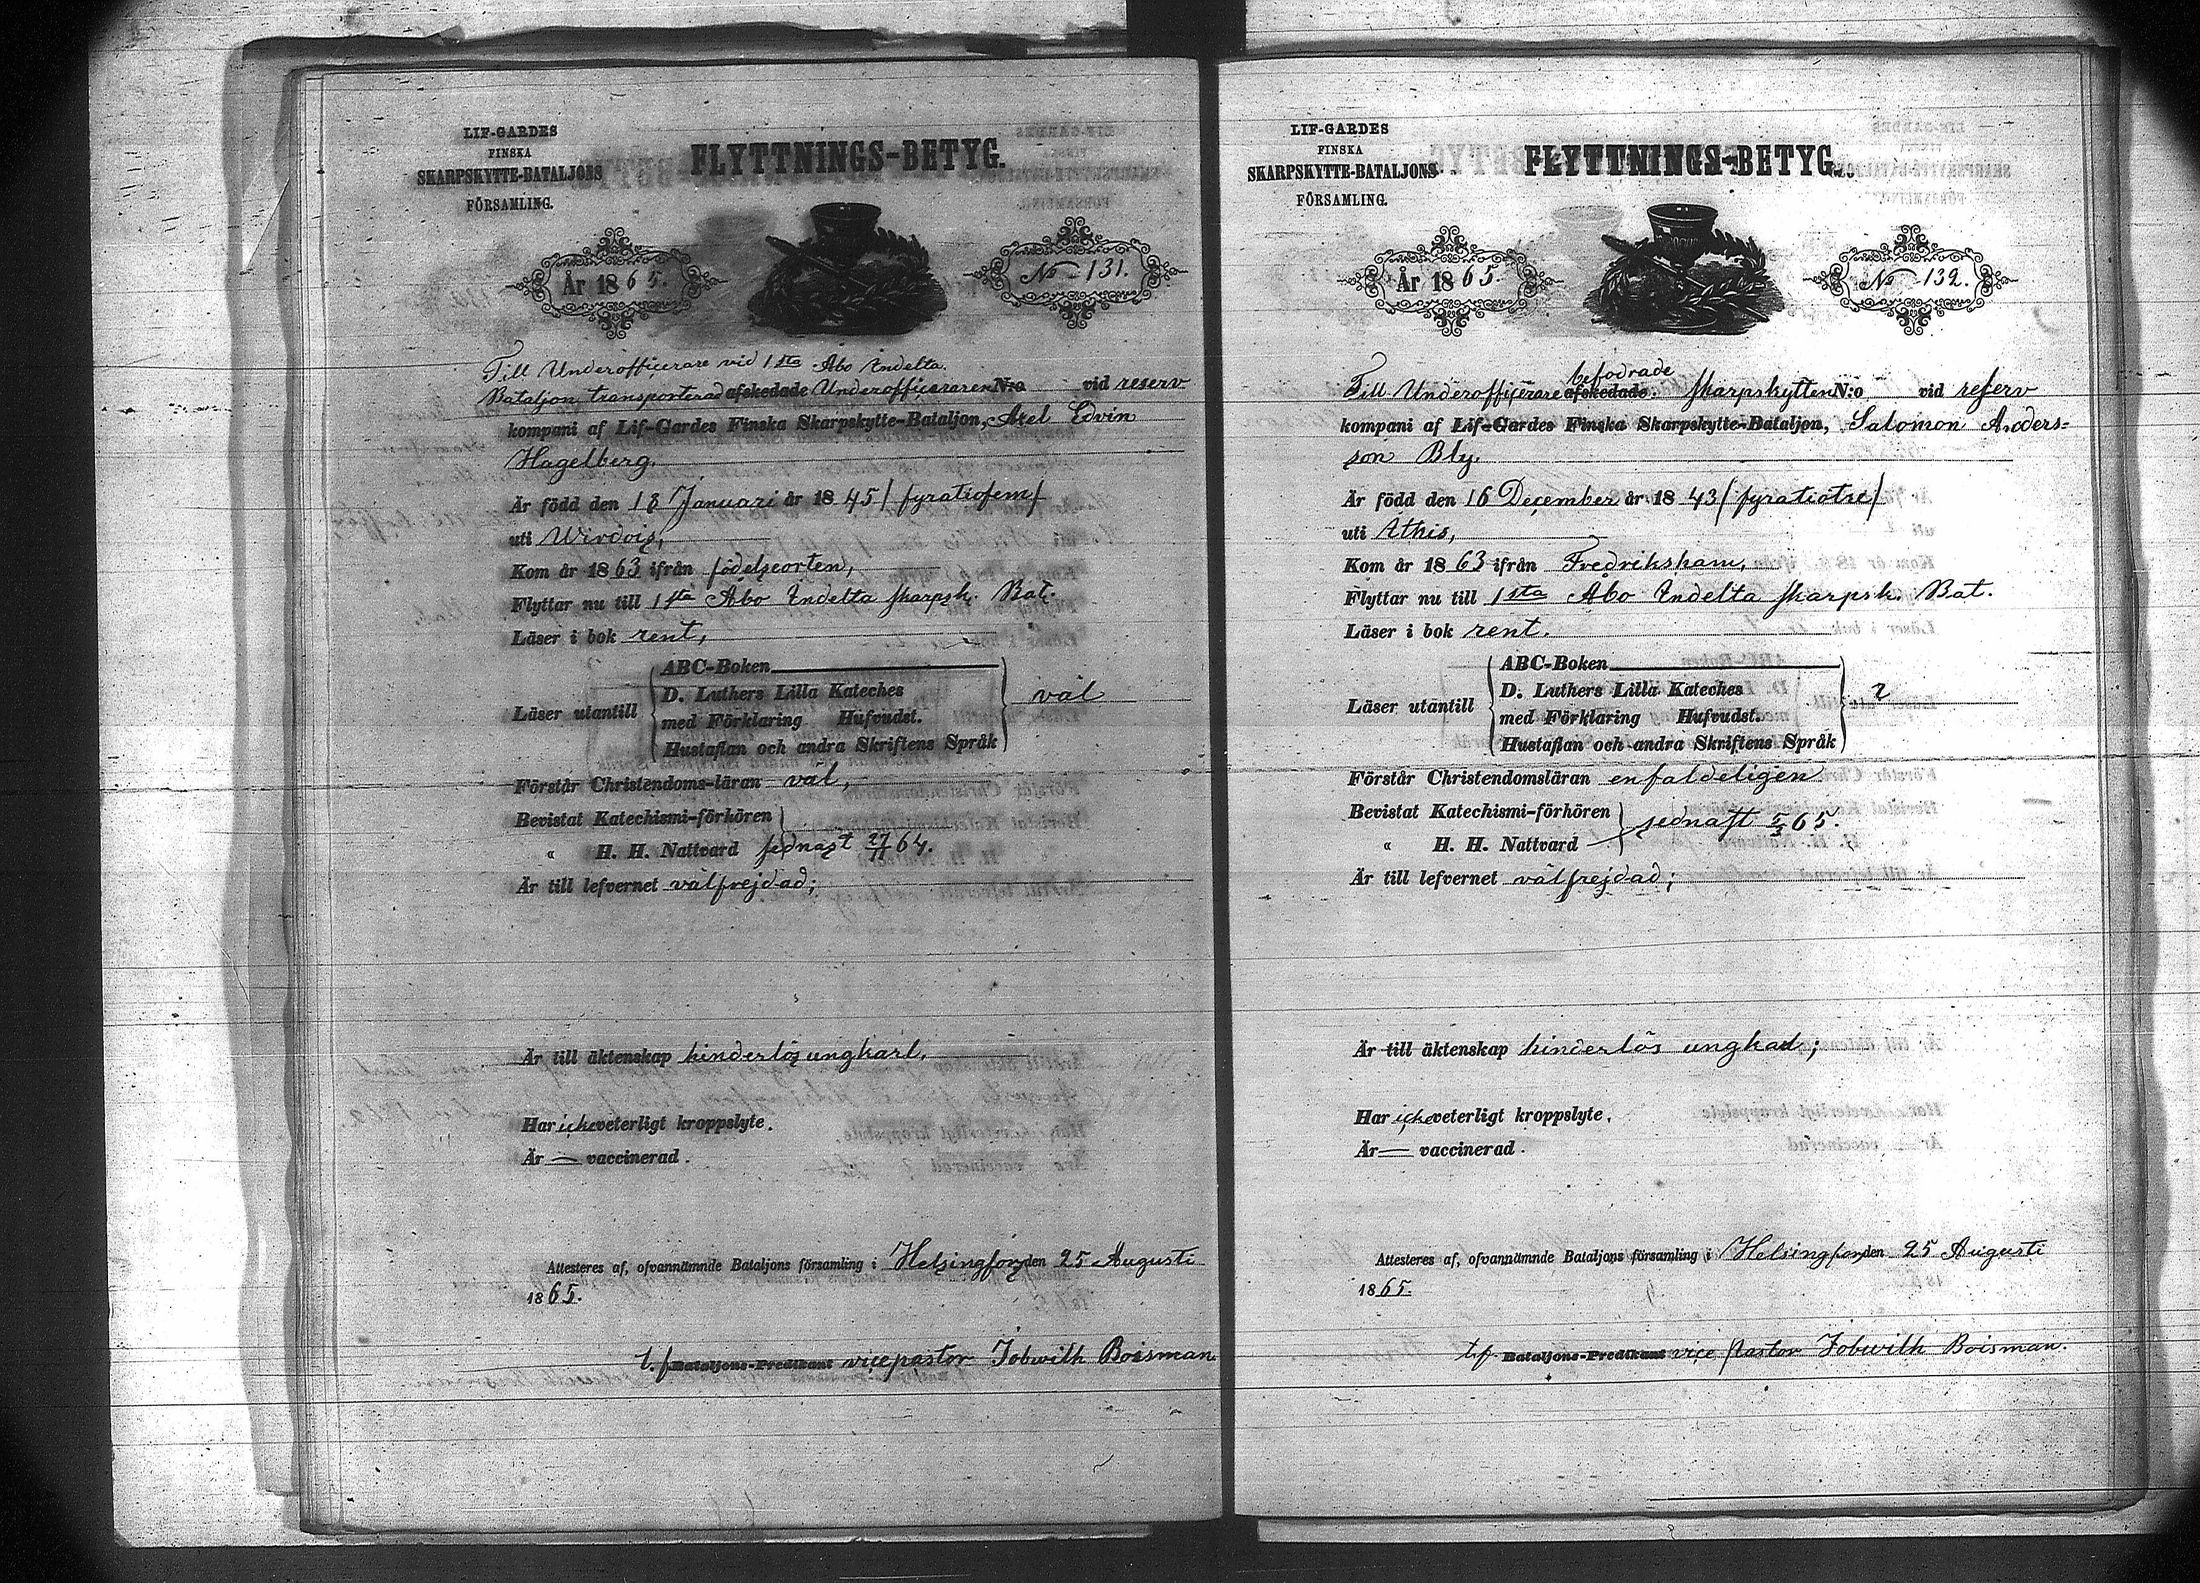 LIF-GARDES
FINSKA
SKARPSKYTTE-BATALJONS
FÖRSAMLING.
FLYTTNINGS-BETYG.
År 1865.
No 131.
Till Underofficerare vid 1sta Åbo Indelta
Bataljon transporterad afskedade Underofficeraren N:o vid reserv
kompani af Lif-Gardes Finska Skarpskytte-Bataljon, Axel Edvin
Hagelberg.
Är född den 18 Januari år 1845 / fyratiofem /
uti Wirdois,
Kom år 1863 ifrån födelseorten,
Flyttar nu till 1sta Åbo Indelta skarpsk. Bat.
Läser i bok rent,
Läser utantill
ABC-Boken
D. Luthers Lilla Kateches
med Förklaring Hufvudst.
Hustaflan och andra Skriftens Språk
väl
Förstår Christendoms-läran väl,
Bevistat Katechismi-förhören
" H. H. Nattvard sednast 27/11 64.
Är till lefvernet välfrejdad;
Är till äktenskap hinderlös ungkarl,
Har icke veterligt kroppslyte.
Är — vaccinerad.
Attesteres af, ofvannämnde Bataljons församling i Helsingfors den 25 Augusti
1865.
t. f. Bataljons-Predikant vicepastor Jobwith Boisman.
LIF-GARDES
FINSKA
SKARPSKYTTE-BATALJONS
FÖRSAMLING.
FLYTTNINGS-BETYG.
År 1865.
No 132.
befodrade
Till Underofficerare afskedade skarpskytten N:o vid reserv
kompani af Lif-Gardes Finska Skarpskytte-Bataljon, Salomon Anders=
son Bly.
Är född den 16 December år 1843 / fyratiotre /
uti Athis,
Kom år 1863 ifrån Fredriksham,
Flyttar nu till 1sta Åbo Indelta skarpsk. Bat.
Läser i bok rent.
Läser utantill
ABC-Boken
D. Luthers Lilla Kateches
med Förklaring Hufvudst.
Hustaflan och andra Skriftens Språk
Förstår Christendomsläran enfaldeligen
Bevistat Katechismi-förhören
" H. H. Nattvard
sednast 5/3 65.
Är till lefvernet välfrejdad;
Är till äktenskap hinderlös ungkarl;
Har icke veterligt kroppslyte.
Är — vaccinerad.
Attesteres af, ofvannämnde Bataljons församling i Helsingfors den 25 Augusti
1865.
t.f. Bataljons-Predikant vice Pastor Jobwith Boisman.